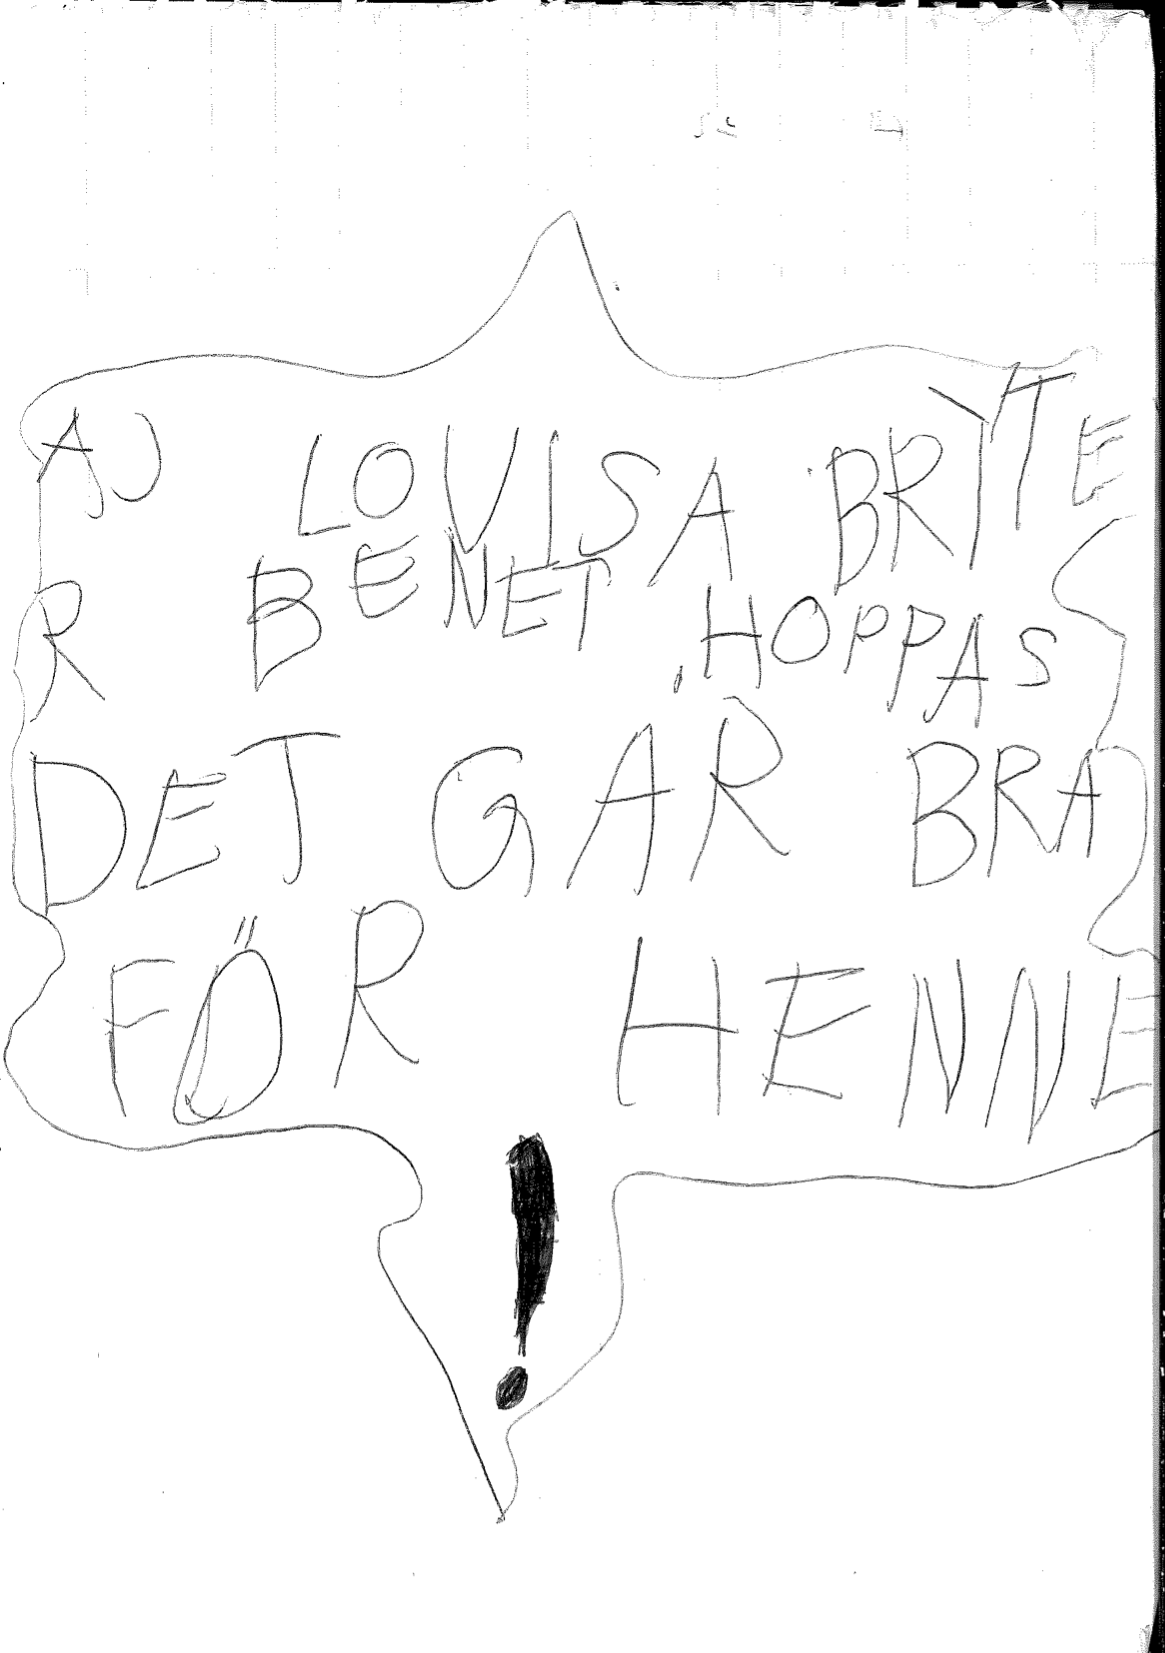 AJ LOVISA BRYTE
R BENET. HOPPAS
DET GAR BRA
FÖR HENNE
!